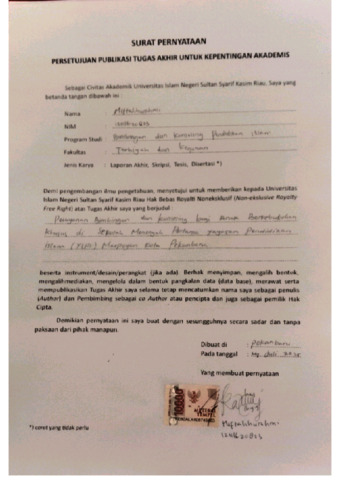 SURAT PERNYATAAN
PERSETUJUAN PUBLIKASI TUGAS AKHIR UNTUK KEPENTINGAN AKADEMIS
Sebagai Civitas Akademik Universitas Islam Negeri Sultan Syarif Kasim Riau. Saya yang
betanda tangan dibawah ini :
Nama :
NIM :
Program Studi : Bimbingan dan Konseling Pendidikan Islam
Fakultas : Tarbiyah dan Keguruan
Jenis Karya : Laporan Akhir, Skripsi, Tesis, Disertasi *)
Demi pengembangan ilmu pengetahuan, menyetujui untuk memberikan kepada Universitas
Islam Negeri Sultan Syarif Kasim Riau Hak Bebas Royalti Noneksklusif (Non-exclusive Royalty
Free Right) atas Tugas Akhir saya yang berjudul :
Bimbingan dan Konseling bagi
di Sekolah Menengah Pertama Yayasan Pendidikan
Islam Kota Pekanbaru
beserta instrument/desain/perangkat (jika ada). Berhak menyimpan, mengalih bentuk,
mengalihmediakan, mengelola dalam bentuk pangkalan data (data base), merawat serta
mempublikasikan Tugas Akhir saya selama tetap mencatumkan nama saya sebagai penulis
(Author) dan Pembimbing sebagai co Author atau pencipta dan juga sebagai pemilik Hak
Cipta.
Demikian pernyataan ini saya buat dengan sesungguhnya secara sadar dan tanpa
paksaan dari pihak manapun.
Dibuat di : Pekanbaru
Pada tanggal : Juli
Yang membuat pernyataan
10000
METERAI
TEMPEL
*) coret yang tidak perlu